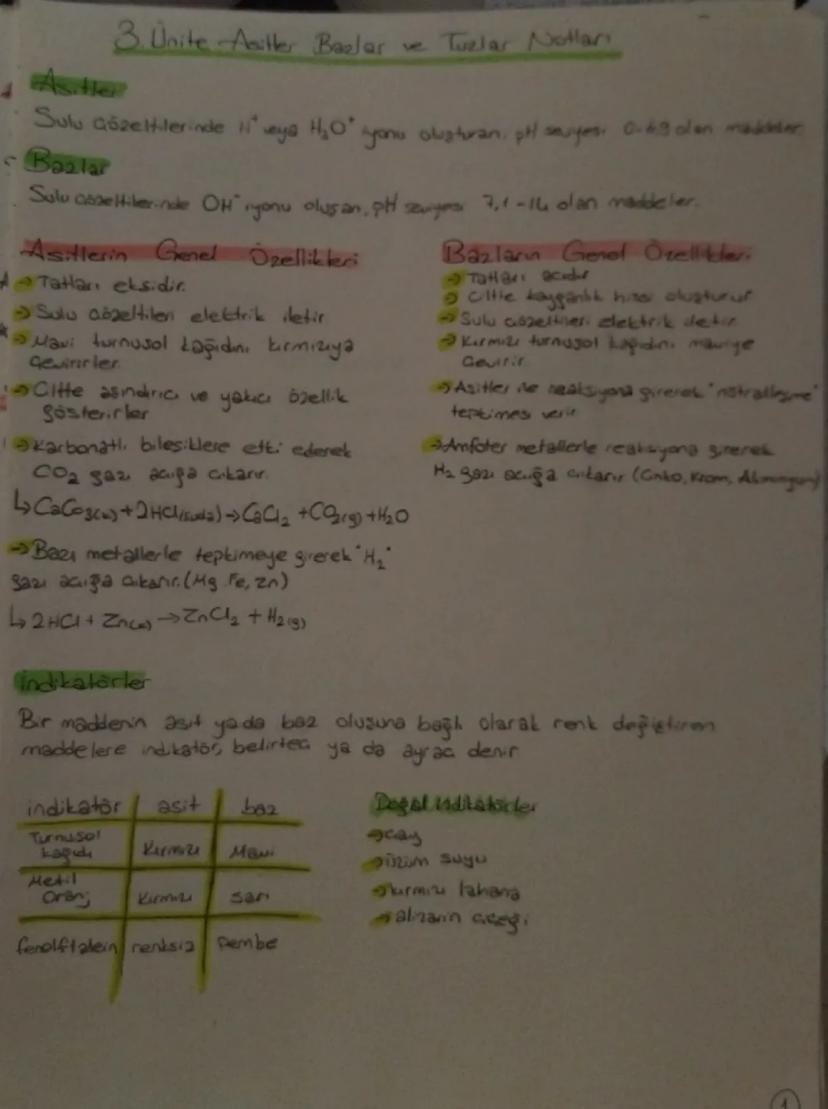 3. Ünite Asitler Bazlar ve Tuzlar Notları
Asitler
Sulu çözeltilerinde H⁺ veya H₃O⁺ iyonu oluşturan, pH seviyesi 0-6,9 olan maddeler
Bazlar
Sulu çözeltilerinde OH⁻ iyonu oluşan, pH seviyesi 7,1-14 olan maddeler.
Asitlerin Genel Özellikleri
→ Tatları ekşidir.
→ Sulu çözeltileri elektrik iletir
→ Mavi turnusol kağıdını kırmızıya
çevirirler
→ Ciltte aşındırıcı ve yakıcı özellik
gösterirler
→ Karbonatlı bileşiklere etki ederek
CO₂ gazı açığa çıkarır.
↳ CaCO₃(k) + 2HCl(suda) → CaCl₂ + CO₂(g) + H₂O
→ Bazı metallerle tepkimeye girerek "H₂"
gazı açığa çıkarır. (Mg, Fe, Zn)
↳ 2HCl + Zn(k) → ZnCl₂ + H₂(g)
Bazların Genel Özellikleri
→ Tatları acıdır
→ Ciltte kayganlık hissi oluşturur
→ Sulu çözeltileri elektrik iletir
→ Kırmızı turnusol kağıdını maviye
çevirir
→ Asitler ile reaksiyona girerek "nötralleşme"
tepkimesi verir
→ Amfoter metallerle reaksiyona girerek
H₂ gazı açığa çıkarır (Çinko, Krom, Alüminyum)
İndikatörler
Bir maddenin asit yada baz oluşuna bağlı olarak renk değiştiren
maddelere indikatör, belirteç ya da ayraç denir
indikatör asit baz
Turnusol
kağıdı Kırmızı Mavi
Metil
Oranj Kırmızı sarı
fenolftalein renksiz Pembe
Doğal indikatörler
→ çay
→ üzüm suyu
→ kırmızı lahana
→ alizarin çiçeği
1